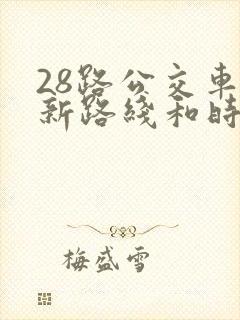 28路公交車
新路綫和時
梅盛雪